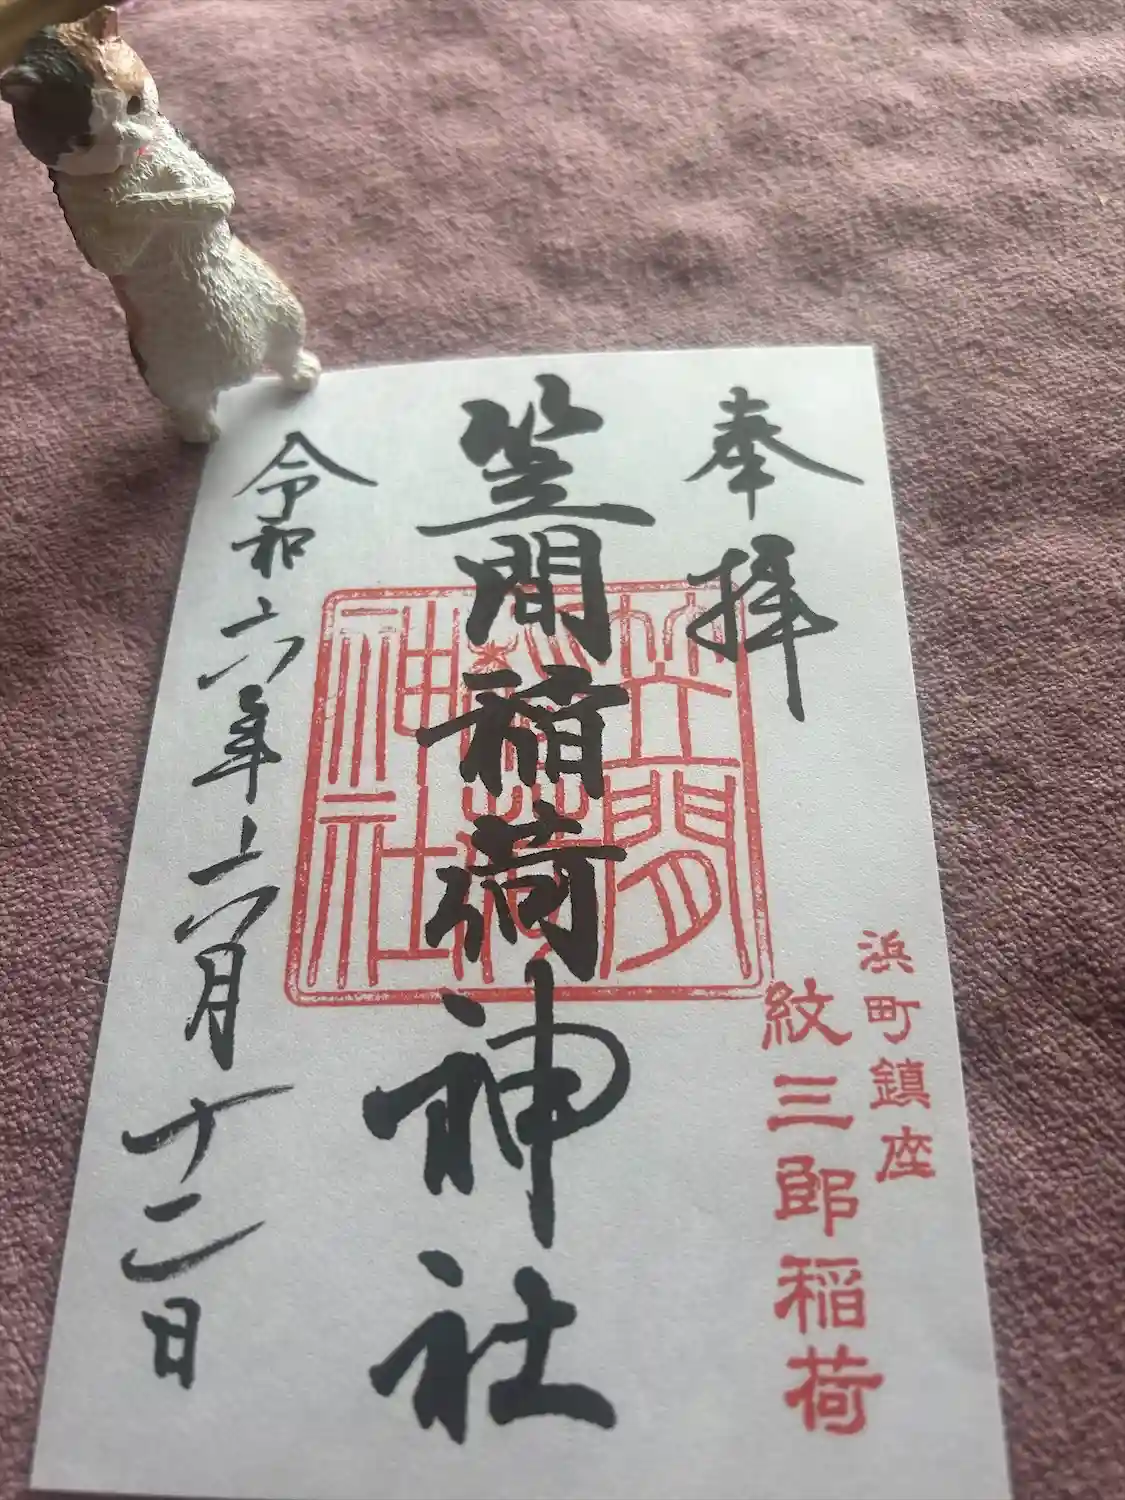 奉拝
浜町鎮座
紋三郎稲荷
笠間稲荷神社
笠間稲荷神社
令和六年六月十二日